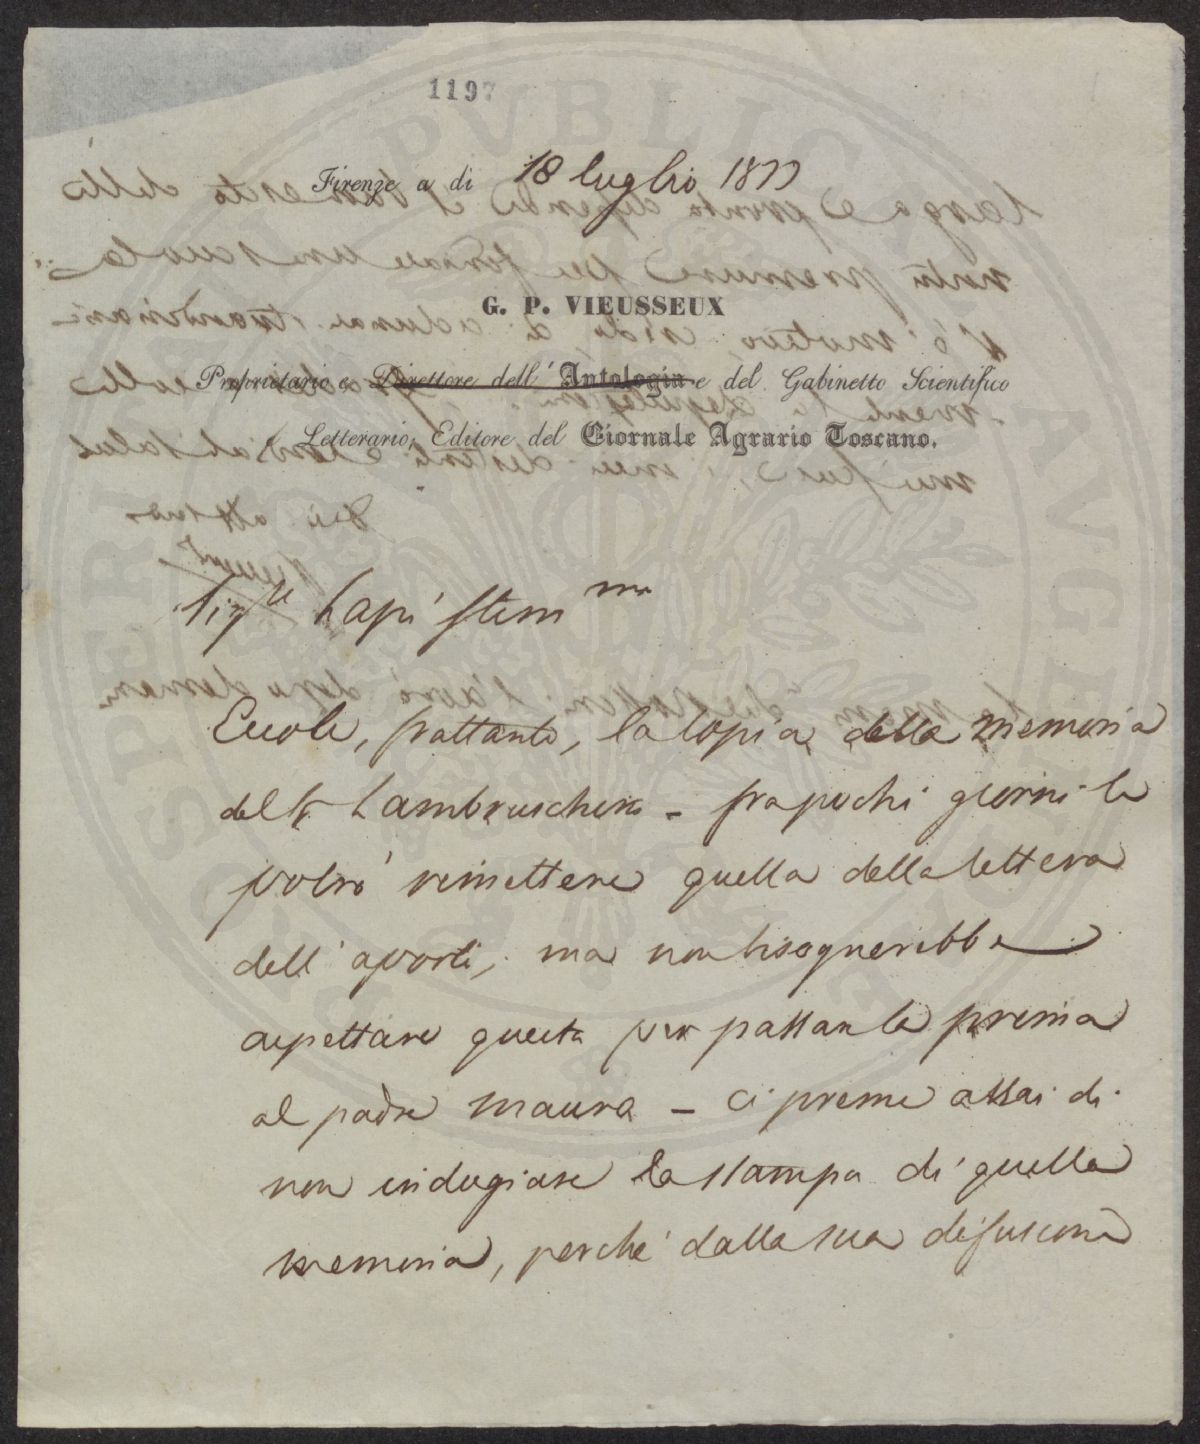 1197
Firenze a dì 18 luglio 1833
G. P. VIEUSSEUX
Proprietario e Direttore dell' Antologia e del Gabinetto Scientifico
Letterario, Editore del Giornale Agrario Toscano.
Sigre Lapi Stimmo
Eccole, frattanto, la copia della memoria
del Lambruschini - fra pochi giorni le
potrò rimettere quella della lettera
dell'aporti, ma non bisognerebbe
aspettare questa per passare la prima
al padre Mauro - ci preme assai di
non indugiare la stampa di quella
memoria, perchè dalla sua difusione